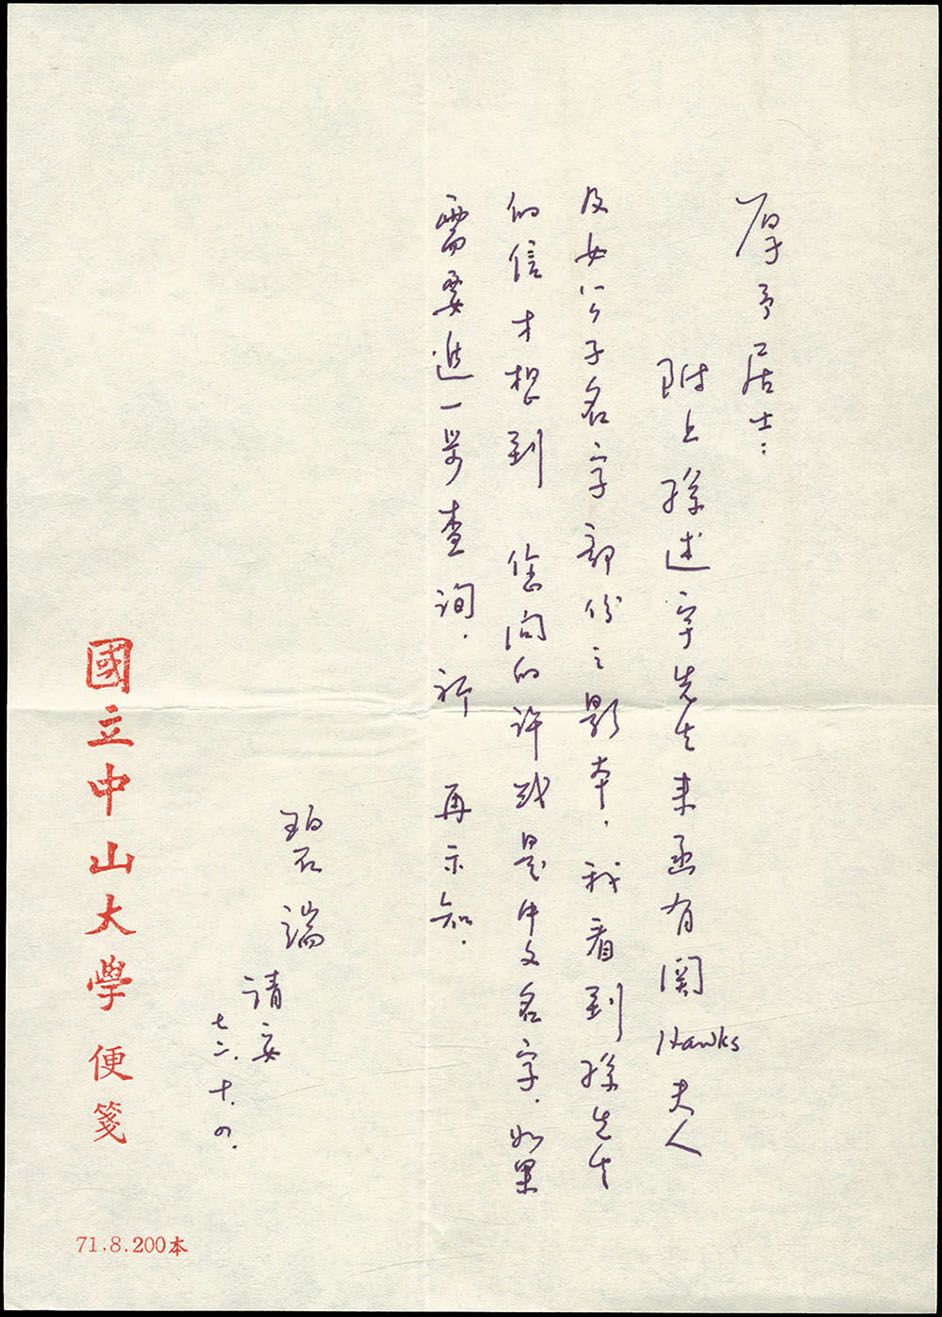 厚予居士：
附上孫述宇先生来函有関 Hawks 夫人
及女公子名字部份之影本，我看到孫先生
的信才想到 您问的许或是中文名字．如果
需要進一步查询．祈 再示知．
碧端
请安
七二．十．四．
國立中山大學 便箋
71.8.200本